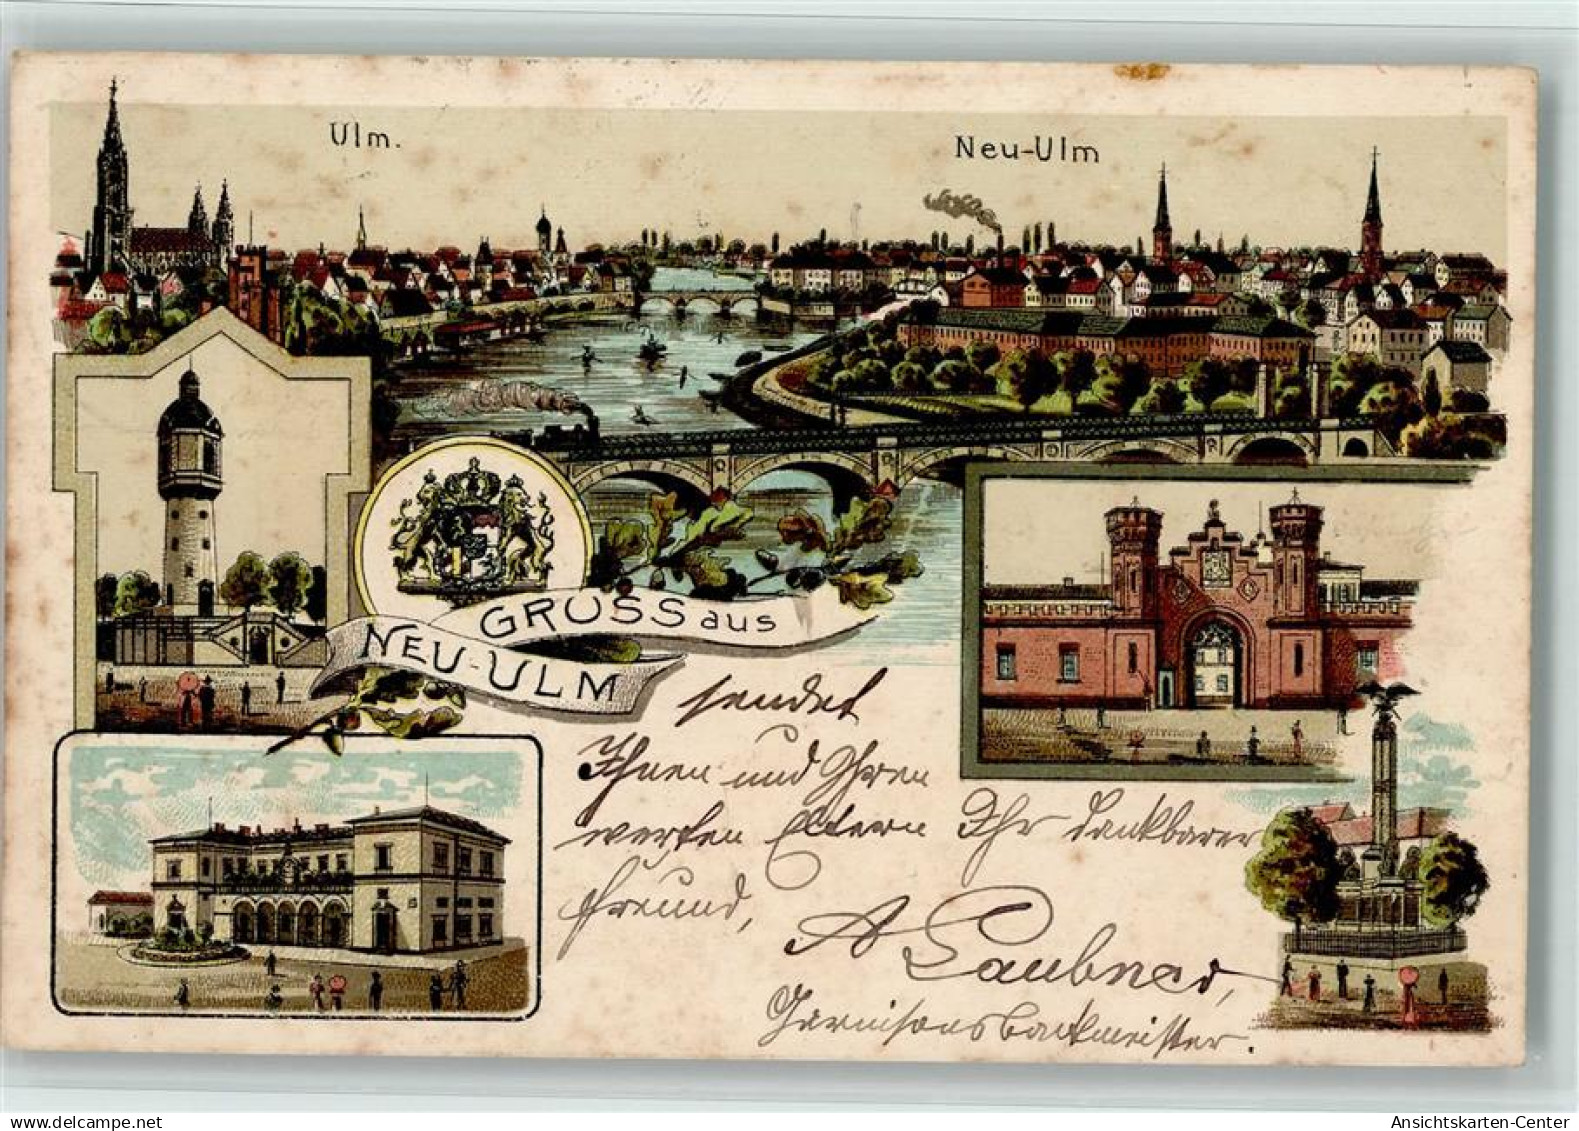 Ulm.
Neu-Ulm
GRUSS aus
NEU-ULM
sendet
Ihnen und Ihren
werten Eltern Ihr dankbarer
Freund,
A Laubner,
Garnisonsbaumeister.
delcampe.net
Ansichtskarten-Center